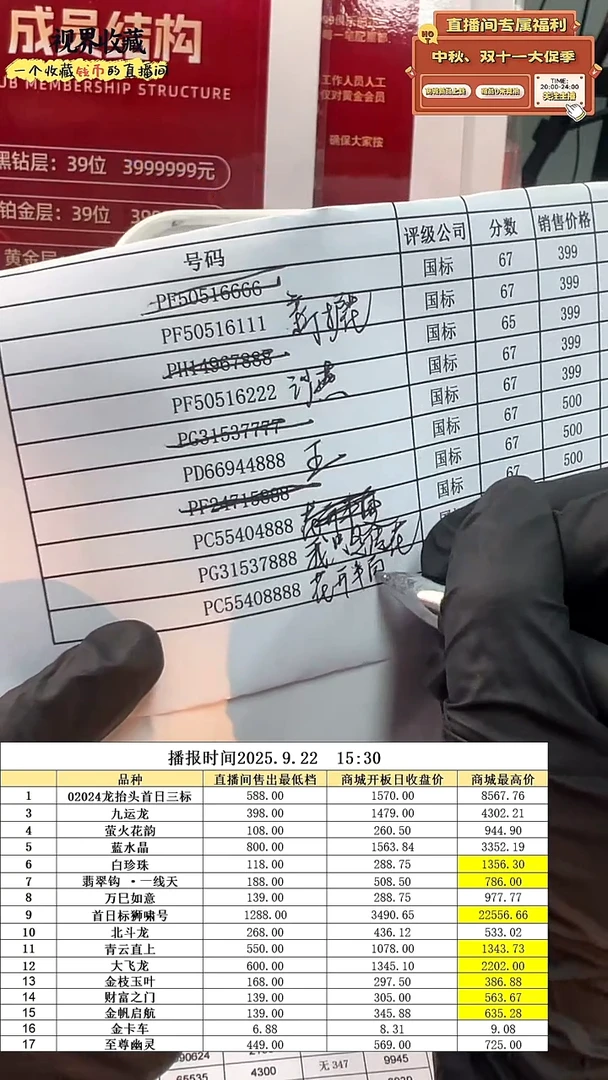 成员结构
UB MEMBERSHIP STRUCTURE
视界收藏
一个收藏钱币的直播间
黑钻层：39位 3999999元
铂金层：39位
黄金层：
工作人员人工
仅对黄金会员
确保大家按
直播间专属福利
中秋、双十一大促季
TIME:
20:00-24:00
关注主播
号码 评级公司 分数 销售价格
PF50516666 国标 67 399
PF50516111 国标 67 399
PH14967888 国标 65 399
PF50516222 国标 67 399
PG31537777 国标 67 500
PD66944888 王 国标 67 500
PF24715888 国标 67
PC55404888
PG31537888
PC55408888 花开半夏
播报时间2025.9.22 15:30
品种 直播间售出最低档 商城开板日收盘价 商城最高价
1 02024龙抬头首日三标 588.00 1570.00 8567.76
3 九运龙 398.00 1479.00 4302.21
4 萤火花韵 108.00 260.50 944.90
5 蓝水晶 800.00 1563.84 3352.19
6 白珍珠 118.00 288.75 1356.30
7 翡翠钩 ·一线天 188.00 508.50 786.00
8 万巳如意 139.00 288.75 977.77
9 首日标狮啸号 1288.00 3490.65 22556.66
10 北斗龙 268.00 436.12 533.02
11 青云直上 550.00 1078.00 1343.73
12 大飞龙 600.00 1345.10 2202.00
13 金枝玉叶 168.00 297.50 386.88
14 财富之门 139.00 305.00 563.67
15 金帆启航 139.00 345.88 635.28
16 金卡车 6.88 8.31 9.08
17 至尊幽灵 449.00 569.00 725.00
890624
65535 4300 无347 9945